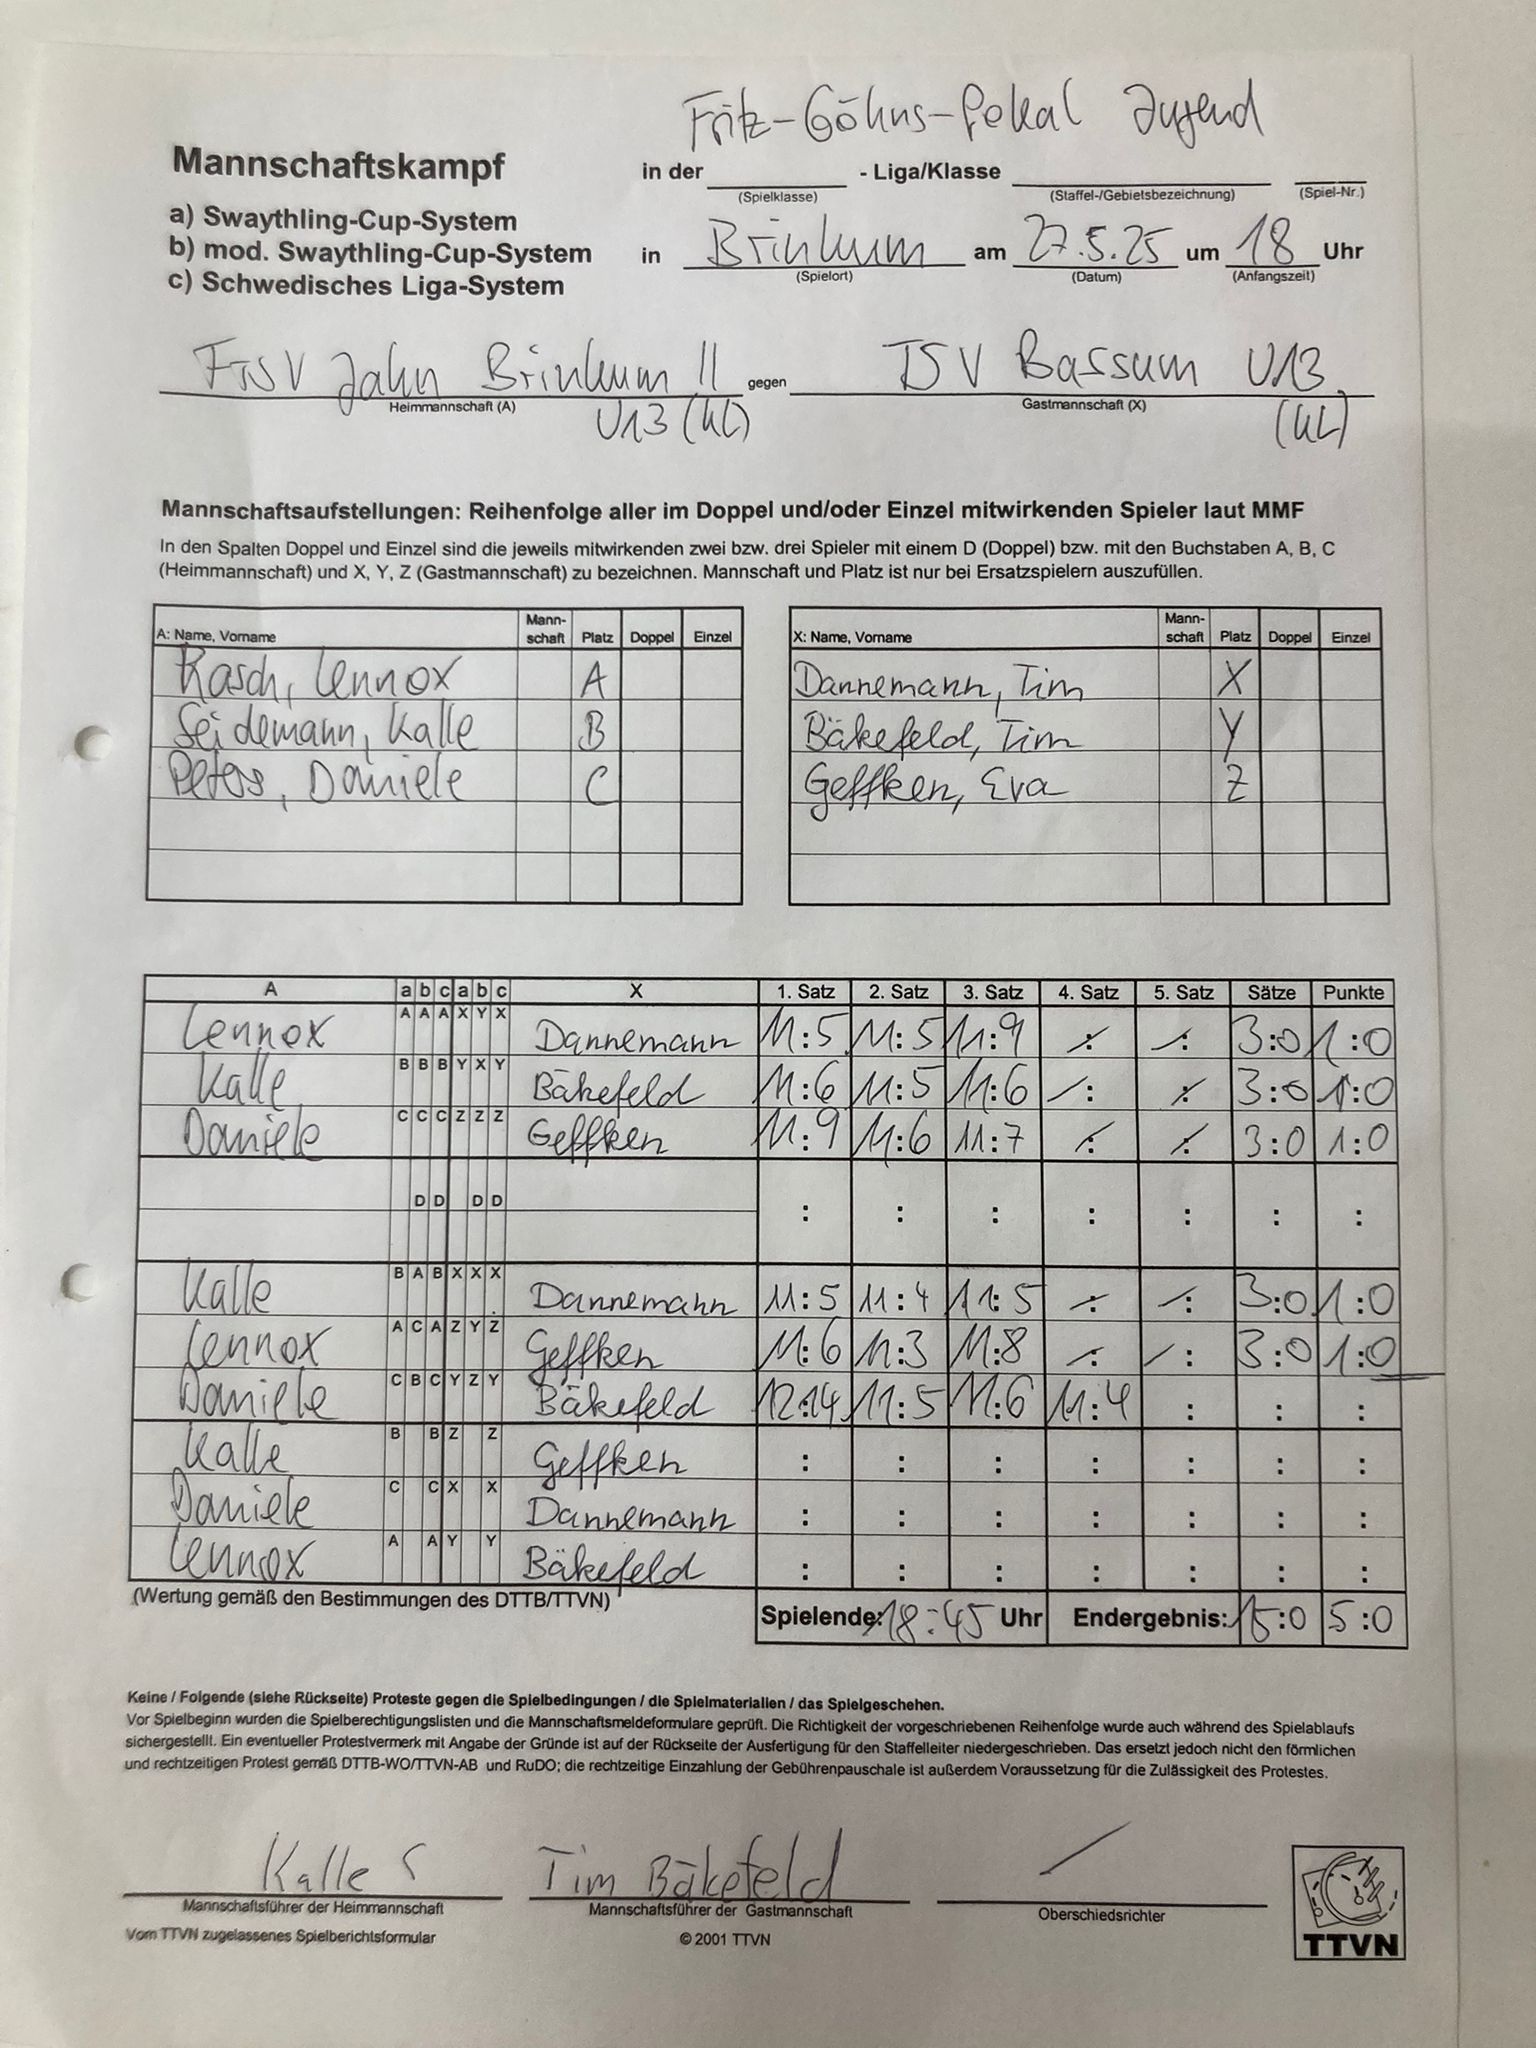 Fritz-Göhns-Pokal Jugend
Mannschaftskampf in der - Liga/Klasse
(Spielklasse) (Staffel-/Gebietsbezeichnung) (Spiel-Nr.)
a) Swaythling-Cup-System
b) mod. Swaythling-Cup-System in Brinkum am 27.5.25 um 18 Uhr
(Spielort) (Datum) (Anfangszeit)
c) Schwedisches Liga-System
FTSV Jahn Brinkum II gegen TSV Bassum U13
Heimmannschaft (A) Gastmannschaft (X)
U13 (KL) (KL)
Mannschaftsaufstellungen: Reihenfolge aller im Doppel und/oder Einzel mitwirkenden Spieler laut MMF
In den Spalten Doppel und Einzel sind die jeweils mitwirkenden zwei bzw. drei Spieler mit einem D (Doppel) bzw. mit den Buchstaben A, B, C
(Heimmannschaft) und X, Y, Z (Gastmannschaft) zu bezeichnen. Mannschaft und Platz ist nur bei Ersatzspielern auszufüllen.
A: Name, Vorname Mann-schaft Platz Doppel Einzel X: Name, Vorname Mann-schaft Platz Doppel Einzel
Rasch, Lennox A Dannemann, Tim X
Seidemann, Kalle B Bäkefeld, Tim Y
Peters, Daniele C Geffken, Eva Z
A a b c a b c X 1. Satz 2. Satz 3. Satz 4. Satz 5. Satz Sätze Punkte
Lennox A A A X Y X Dannemann 11:5 11:5 11:9 : : 3:0 1:0
Kalle B B B Y X Y Bäkefeld 11:6 11:5 11:6 : : 3:0 1:0
Daniele C C C Z Z Z Geffken 11:9 11:6 11:7 : : 3:0 1:0
D D D D : : : : : : :
Kalle B A B X X X Dannemann 11:5 11:4 11:5 : : 3:0 1:0
Lennox A C A Z Y Z Geffken 11:6 11:3 11:8 : : 3:0 1:0
Daniele C B C Y Z Y Bäkefeld 12:14 11:5 11:6 11:4 : : :
Kalle B B Z Z Geffken : : : : : : :
Daniele C C X X Dannemann : : : : : : :
Lennox A A Y Y Bäkefeld : : : : : : :
(Wertung gemäß den Bestimmungen des DTTB/TTVN) Spielende: 18:45 Uhr Endergebnis: 15:0 5:0
Keine / Folgende (siehe Rückseite) Proteste gegen die Spielbedingungen / die Spielmaterialien / das Spielgeschehen.
Vor Spielbeginn wurden die Spielberechtigungslisten und die Mannschaftsmeldeformulare geprüft. Die Richtigkeit der vorgeschriebenen Reihenfolge wurde auch während des Spielablaufs
sichergestellt. Ein eventueller Protestvermerk mit Angabe der Gründe ist auf der Rückseite der Ausfertigung für den Staffelleiter niedergeschrieben. Das ersetzt jedoch nicht den förmlichen
und rechtzeitigen Protest gemäß DTTB-WO/TTVN-AB und RuDO; die rechtzeitige Einzahlung der Gebührenpauschale ist außerdem Voraussetzung für die Zulässigkeit des Protestes.
Kalle S Tim Bäkefeld
Mannschaftsführer der Heimmannschaft Mannschaftsführer der Gastmannschaft Oberschiedsrichter
Vom TTVN zugelassenes Spielberichtsformular © 2001 TTVN TTVN